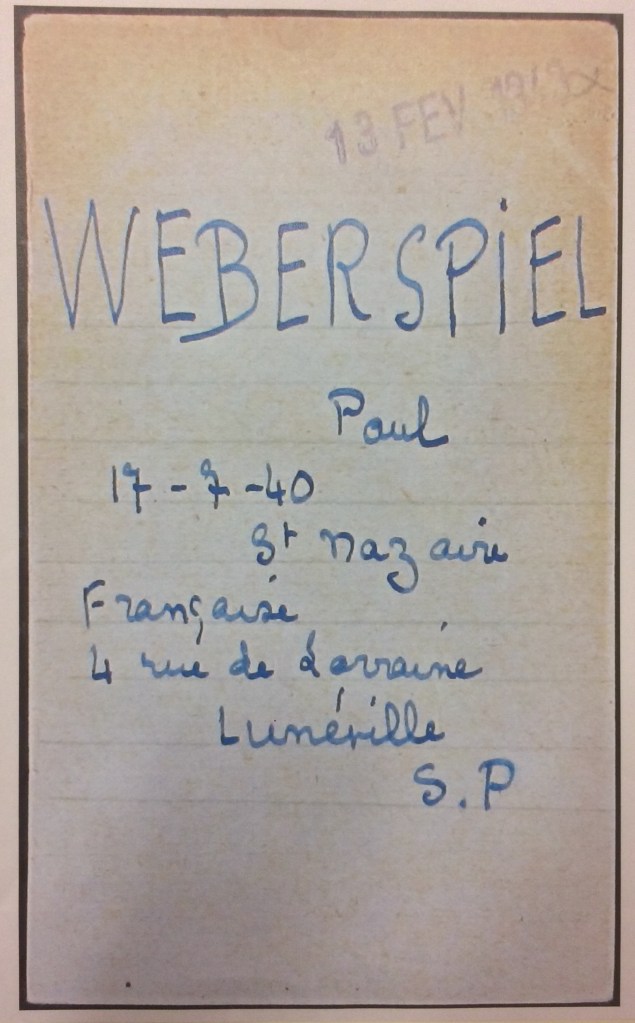 13 FEV
WEBERSPiEL
Paul
17-7-40
St Nazaire
Française
4 rue de Lorraine
Lunéville
S.P